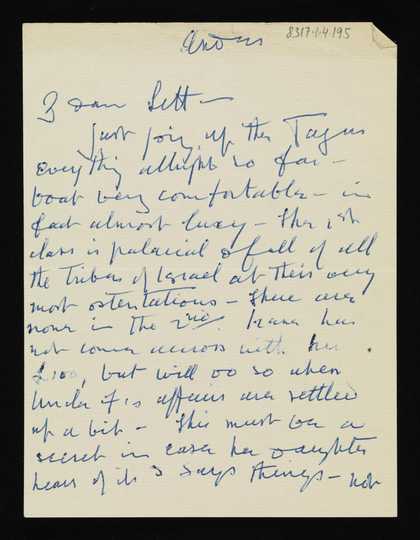 8317.1.4.195
Dear Sett –
Just going up the Tagus
Everything allright so far –
boat very comfortable – in
fact almost luxy – the 1st
class is palacial & full of all
the Tribes of Israel at their very
most ostentatious – there are
none in the 2nd. has
not come across with her
£100, but will do so when
Uncle F's affairs are settled
up a bit – This must be a
secret in case her daughter
hears of it & says things – not